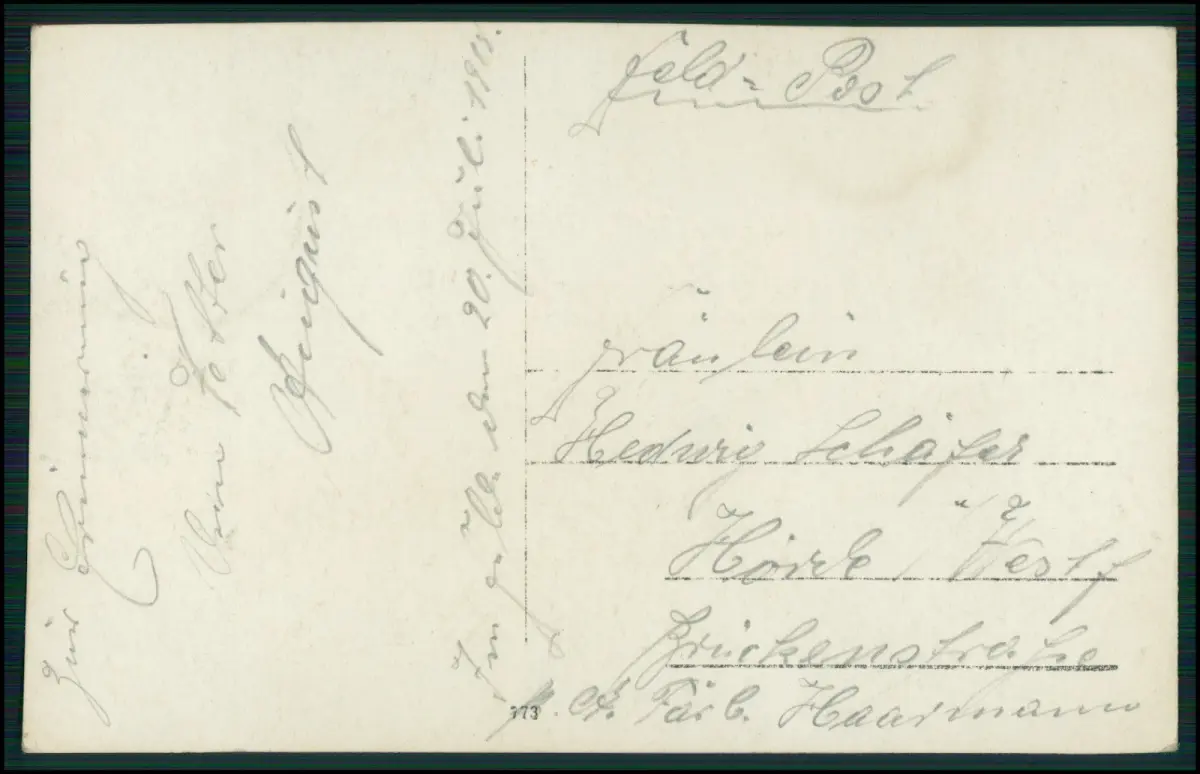 Zur Erinnerung
Von
August
Im Felde den 20. Juli 1915.
Feld-Post
Fräulein
Hedwig Schäfer
Hörde / Westf
Brückenstraße
173
Färb. Haarmann